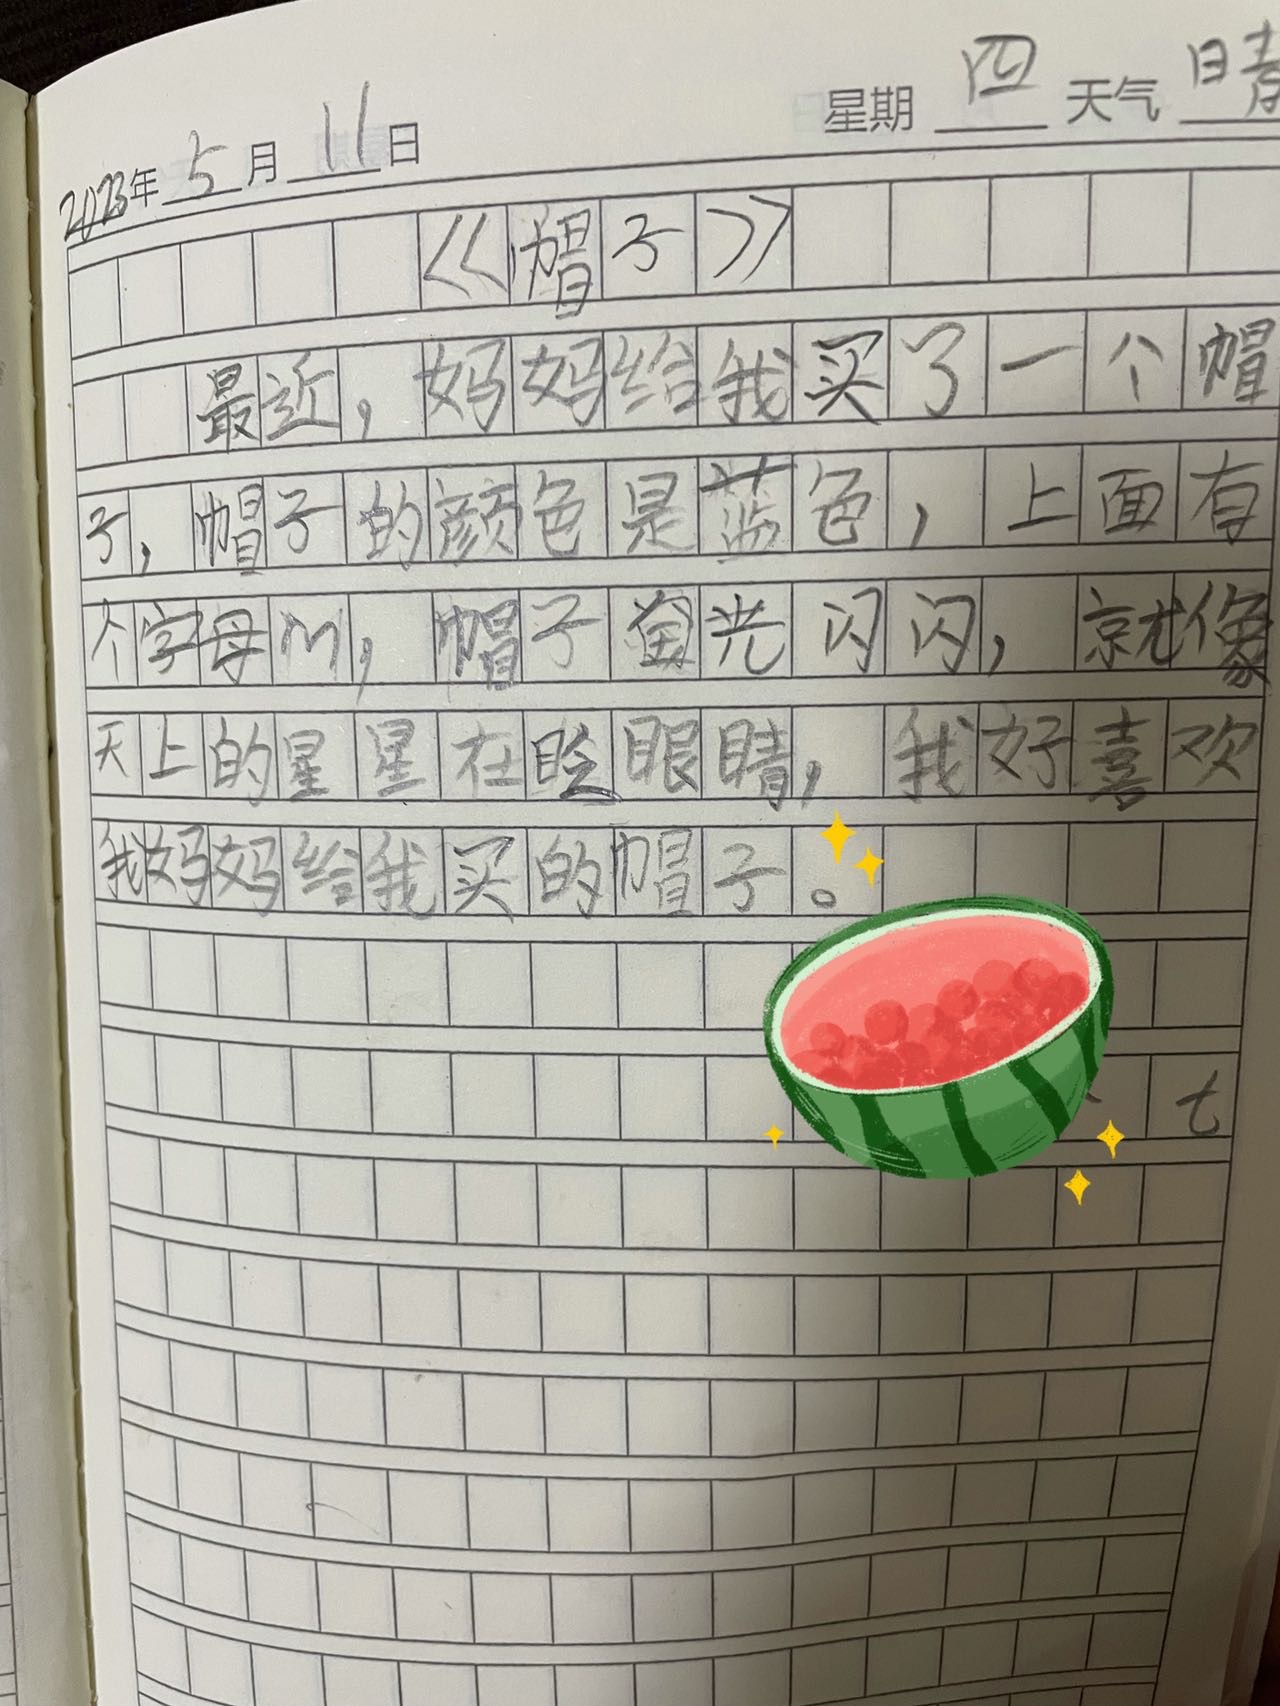 2023年 5 月 11 日 星期 四 天气 晴
《帽子》
最近，妈妈给我买了一个帽
子，帽子的颜色是蓝色，上面有
个字母m，帽子金光闪闪，就像
天上的星星在眨眼睛，我好喜欢
我妈妈给我买的帽子。
七